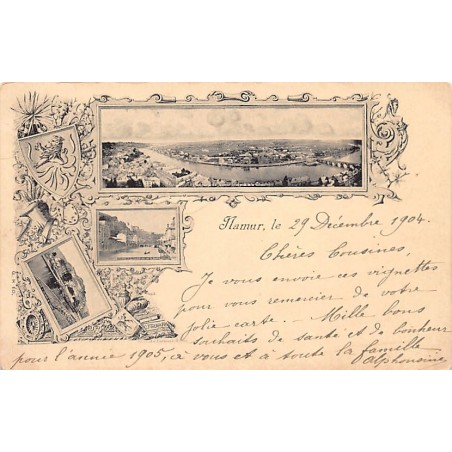 Namur, le 29 Décembre 1904.
Chères Cousines,
Je vous envoie ces vignettes
pour vous remercier de votre
jolie carte. — Mille bons
souhaits de santé et de bonheur
pour l'année 1905, à vous et à toute la famille
Alphonsine